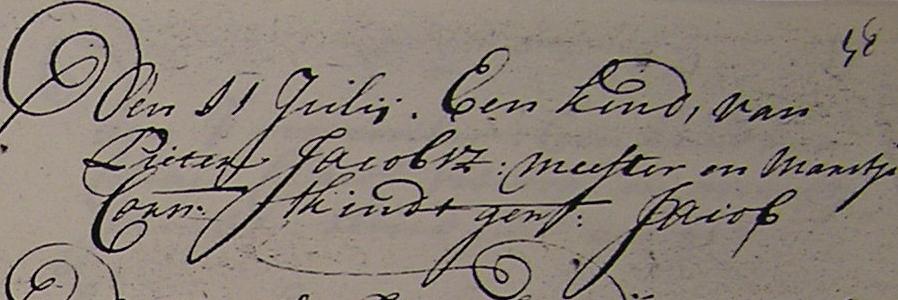 Den 11 Julij. Een kind, van
Pieter Jacobsz: meester en Maertje
Corn: t'kindt gent: Jacob